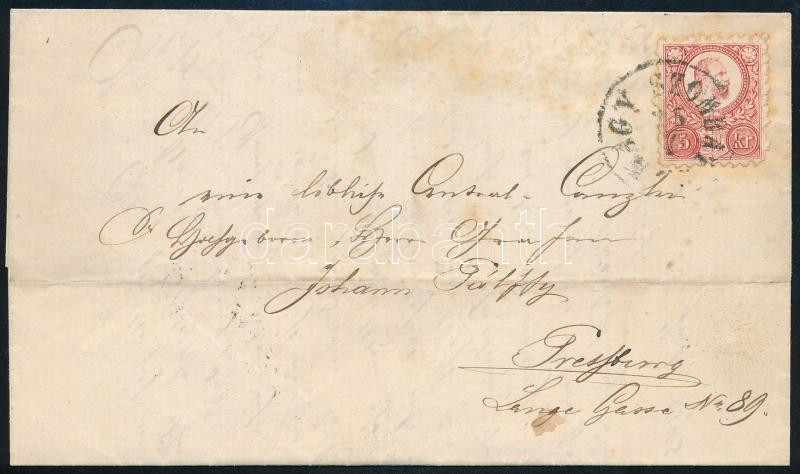 An
eine löbliche Central-Canzlei
Sr Hochgeboren, Herrn Grafen
Johann Pálffy
Pressburg
Lange Gasse Nr 89.
NAGY SZOMBAT
5 kr
darabanth